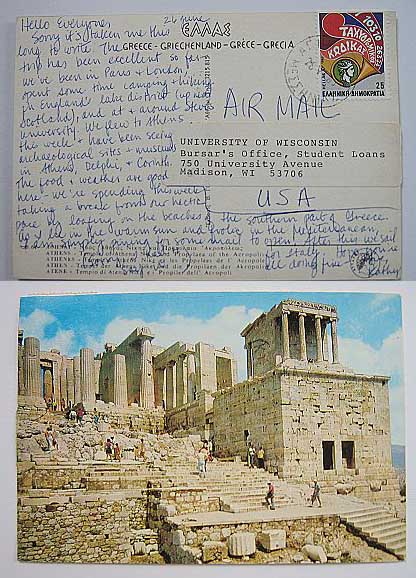 26 June
Hello Everyone,
Sorry it's taken me this
long to write. The
trip has been excellent so far
we've been in Paris & London,
spent some time camping & hiking
in England's lake district (up near
Scotland), and at & around
university. We flew to Athens
this week & have been seeing
archaeological sites & museums
in Athens, Delphi, & Corinth.
The food & weather are good
here - we're spending this week
taking a break from our hectic
pace by loafing on the beaches of the southern part of Greece.
in the warm sun and frolic in the mediterranean,
for some mail to open! After this we sail
for Italy. Hope you're
all doing fine -
Kathy
ΕΛΛΑΣ
GREECE - GRIECHENLAND - GRÈCE - GRECIA
ΤΑΧΥΔΡΟΜΙΚΟΣ
ΚΩΔΙΚΑΣ
25
ΕΛΛΗΝΙΚΗ ΔΗΜΟΚΡΑΤΙΑ
AIR MAIL
UNIVERSITY OF WISCONSIN
Bursar's Office, Student Loans
750 University Avenue
Madison, WI 53706
USA
ATHENS - Temple of Athena Nike and the Propylaea of the Acropolis
ATHENES - Temple d'Athéna Niké et les Propylées de l'Acropole
ATHEN - Tempel der Athena Nike und die Propyläen der Akropolis
ATENE - Tempio di Atena Nike e i Propilei dell'Acropoli